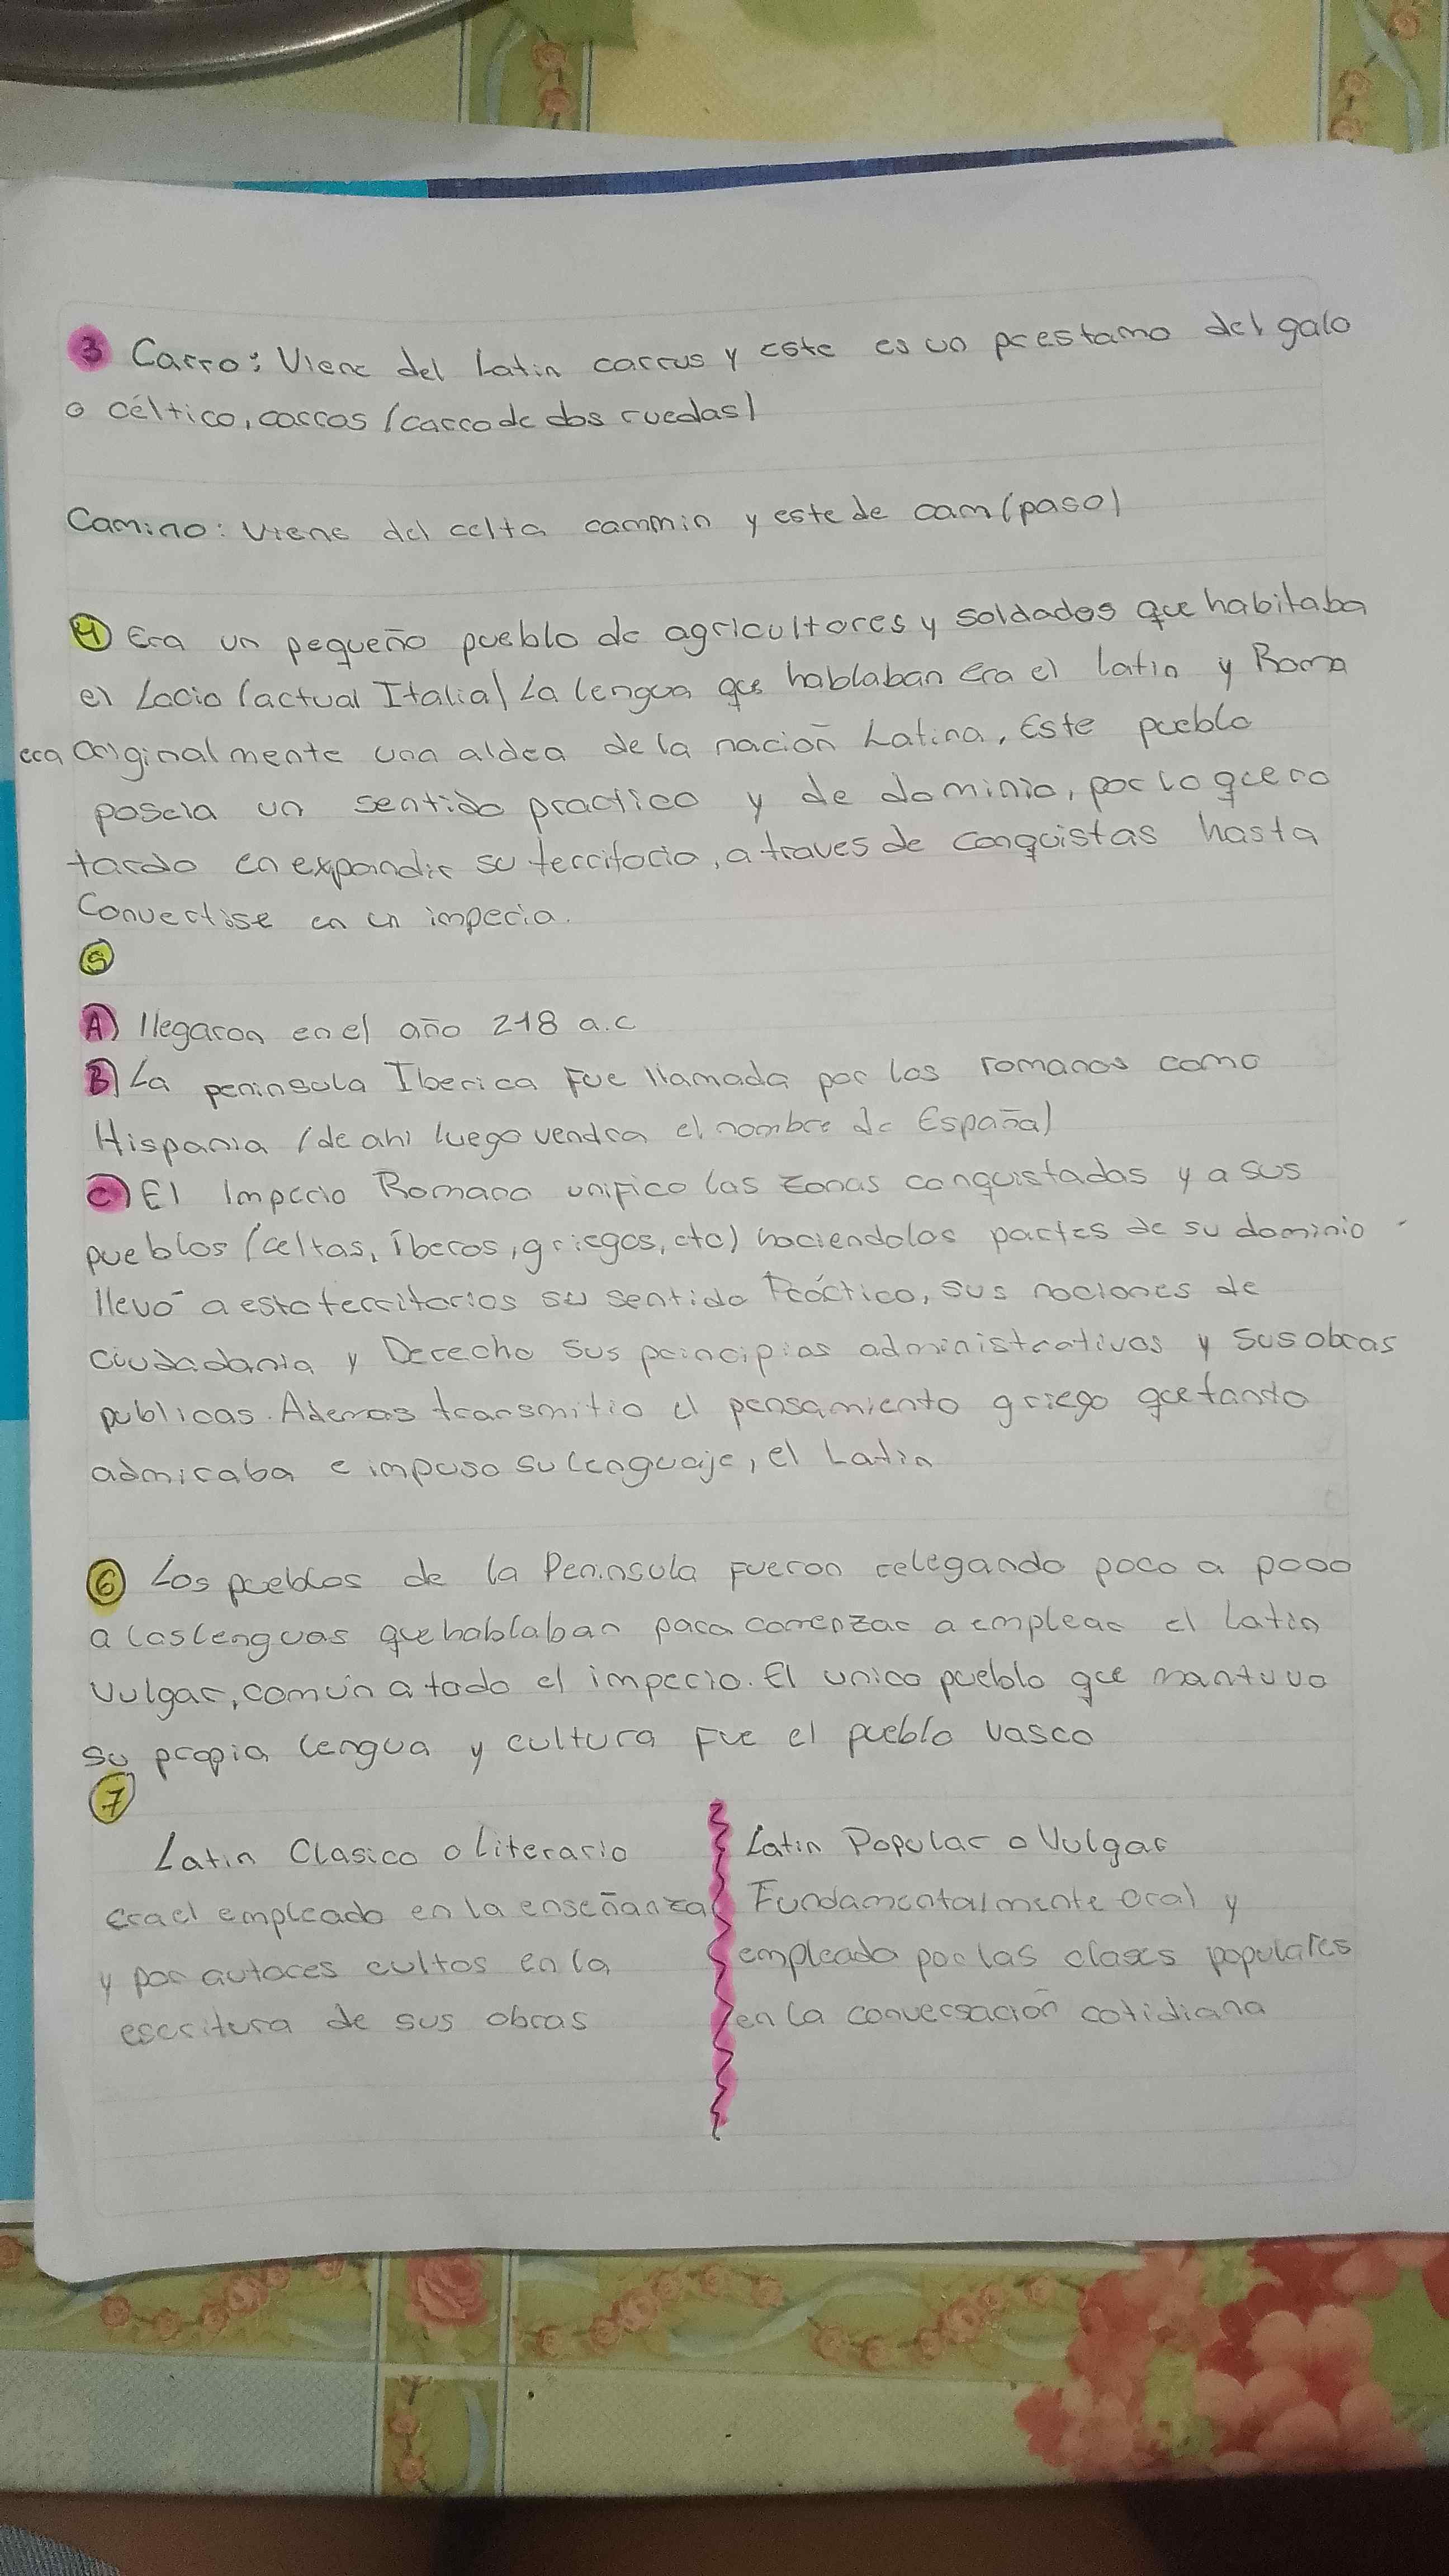 3 Carro: Viene del Latin carrus y este es un prestamo del galo
o céltico, carros (carro de dos ruedas)
Camino: Viene del celta cammin y este de cam (paso)
4) Era un pequeño pueblo de agricultores y soldados que habitaba
el Lacio (actual Italia) La lengua que hablaban era el latin y Roma
era originalmente una aldea de la nación Latina, Este pueblo
poseia un sentido practico y de dominio, por lo que no
tardo en expandir su territorio, a traves de conquistas hasta
Convertise en un imperio.
5
A) llegaron en el año 218 a.c
B) La peninsula Iberica Fue llamada por los romanos como
Hispania (de ahi luego vendra el nombre de España)
C) El Imperio Romano unifico las zonas conquistadas y a sus
pueblos (celtas, iberos, griegos, etc) haciendolos partes de su dominio
llevó a esto territorios su sentido Práctico, sus nociones de
ciudadania y Derecho sus principios administrativos y sus obras
publicas. Ademas transmitio el pensamiento griego que tanto
admiraba e impuso su lenguaje, el Latin
6 Los pueblos de la Peninsula Fueron relegando poco a poco
a las lenguas que hablaban para comenzar a emplear el Latin
Vulgar, común a todo el imperio. El unico pueblo que mantuvo
su propia lengua y cultura Fue el pueblo vasco
7
Latin Clasico o literario
era el empleado en la enseñanza
y por autores cultos en la
escritura de sus obras
Latin Popular o Vulgar
Fundamentalmente oral y
empleado por las clases populares
en la conversación cotidiana